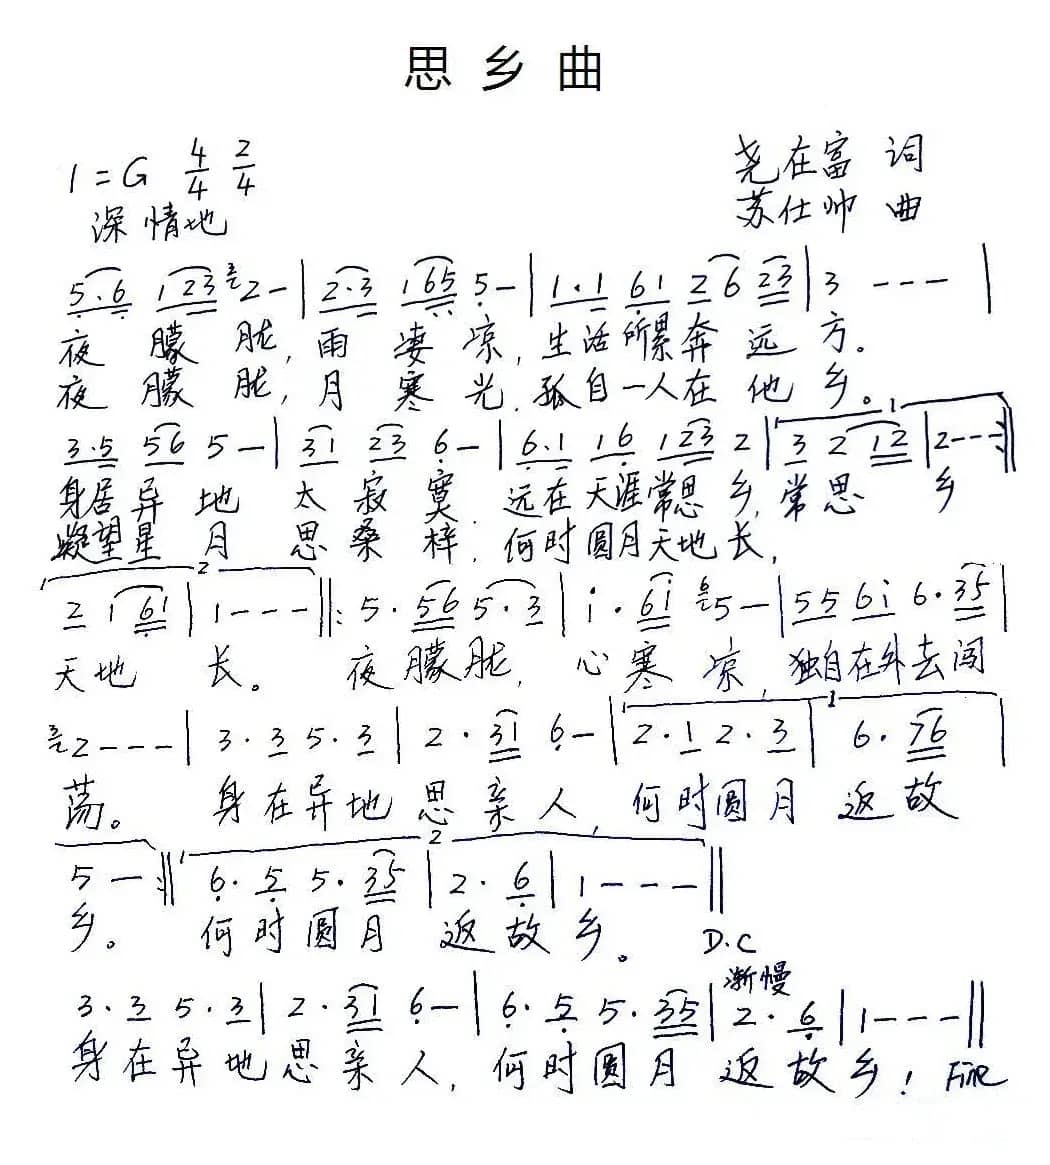 思乡曲
1=G 4/4 2/4
尧在富 词
深情地
苏仕帅 曲
5·6 123 2- | 2·3 165 5- | 1·1 61 26 23 | 3 --- |
夜朦胧,雨凄凉,生活所累奔远方。
夜朦胧,月寒光,孤自一人在他乡。
3·5 56 5- | 31 23 6- | 6·1 16 123 2 | 1 3 2 12 | 2--- :||
身居异地太寂寞,远在天涯常思乡,常思乡
凝望星月思桑梓,何时圆月天地长,
2 2 1 61 | 1--- ||: 5·56 5·3 | i·6i 5- | 55 6i 6·35 |
天地长。夜朦胧,心寒凉,独自在外去闯
2--- | 3·3 5·3 | 2·31 6- | 1 2·1 2·3 | 6·76 |
荡。身在异地思亲人,何时圆月返故
5- :|| 2 6·5 5·35 | 2·6 | 1--- ||
乡。何时圆月返故乡。 D.C
渐慢
3·3 5·3 | 2·31 6- | 6·5 5·35 | 2·6 | 1--- ||
身在异地思亲人,何时圆月返故乡! Fine